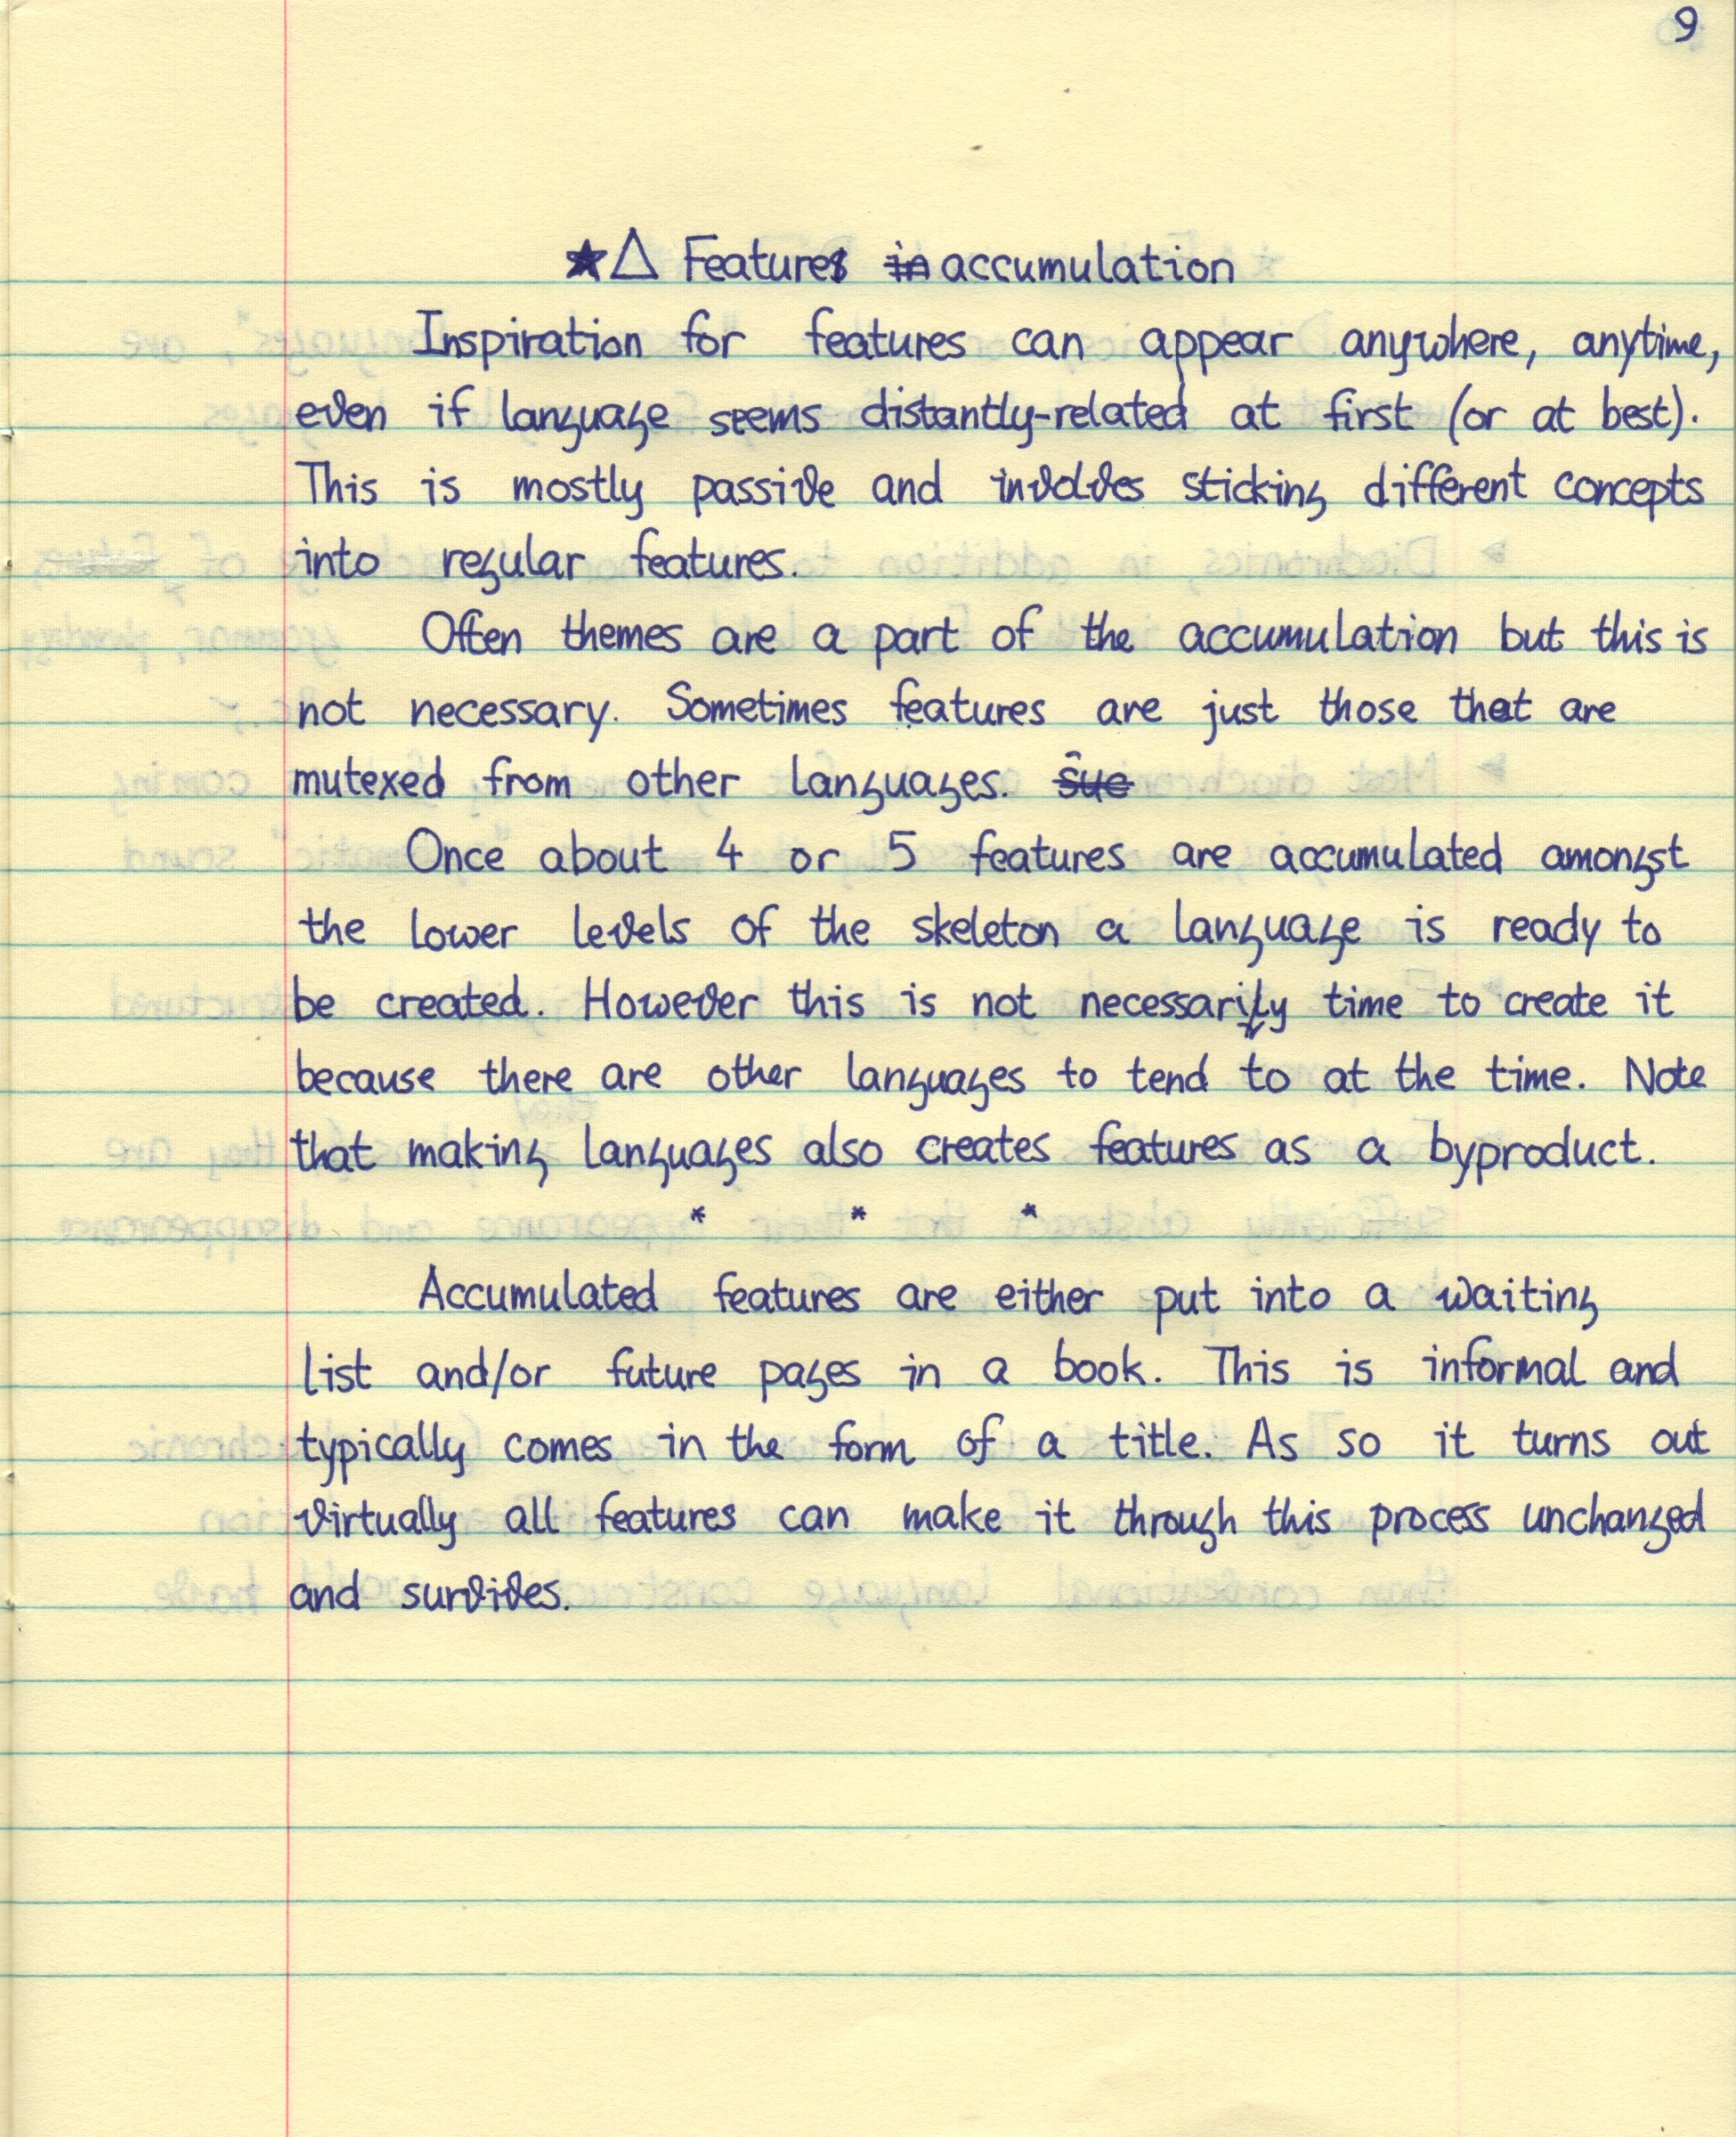 9
★△ Feature ~~in~~ accumulation
Inspiration for features can appear anywhere, anytime,
even if language seems distantly-related at first (or at best).
This is mostly passive and involves sticking different concepts
into regular features.
Often themes are a part of the accumulation but this is
not necessary. Sometimes features are just those that are
mutexed from other languages. ~~suc~~
Once about 4 or 5 features are accumulated amongst
the lower levels of the skeleton a language is ready to
be created. However this is not necessarily time to create it
because there are other languages to tend to at the time. Note
that making languages also creates features as a byproduct.
* * *
Accumulated features are either put into a waiting
list and/or future pages in a book. This is informal and
typically comes in the form of a title. As so it turns out
virtually all features can make it through this process unchanged
and survives.